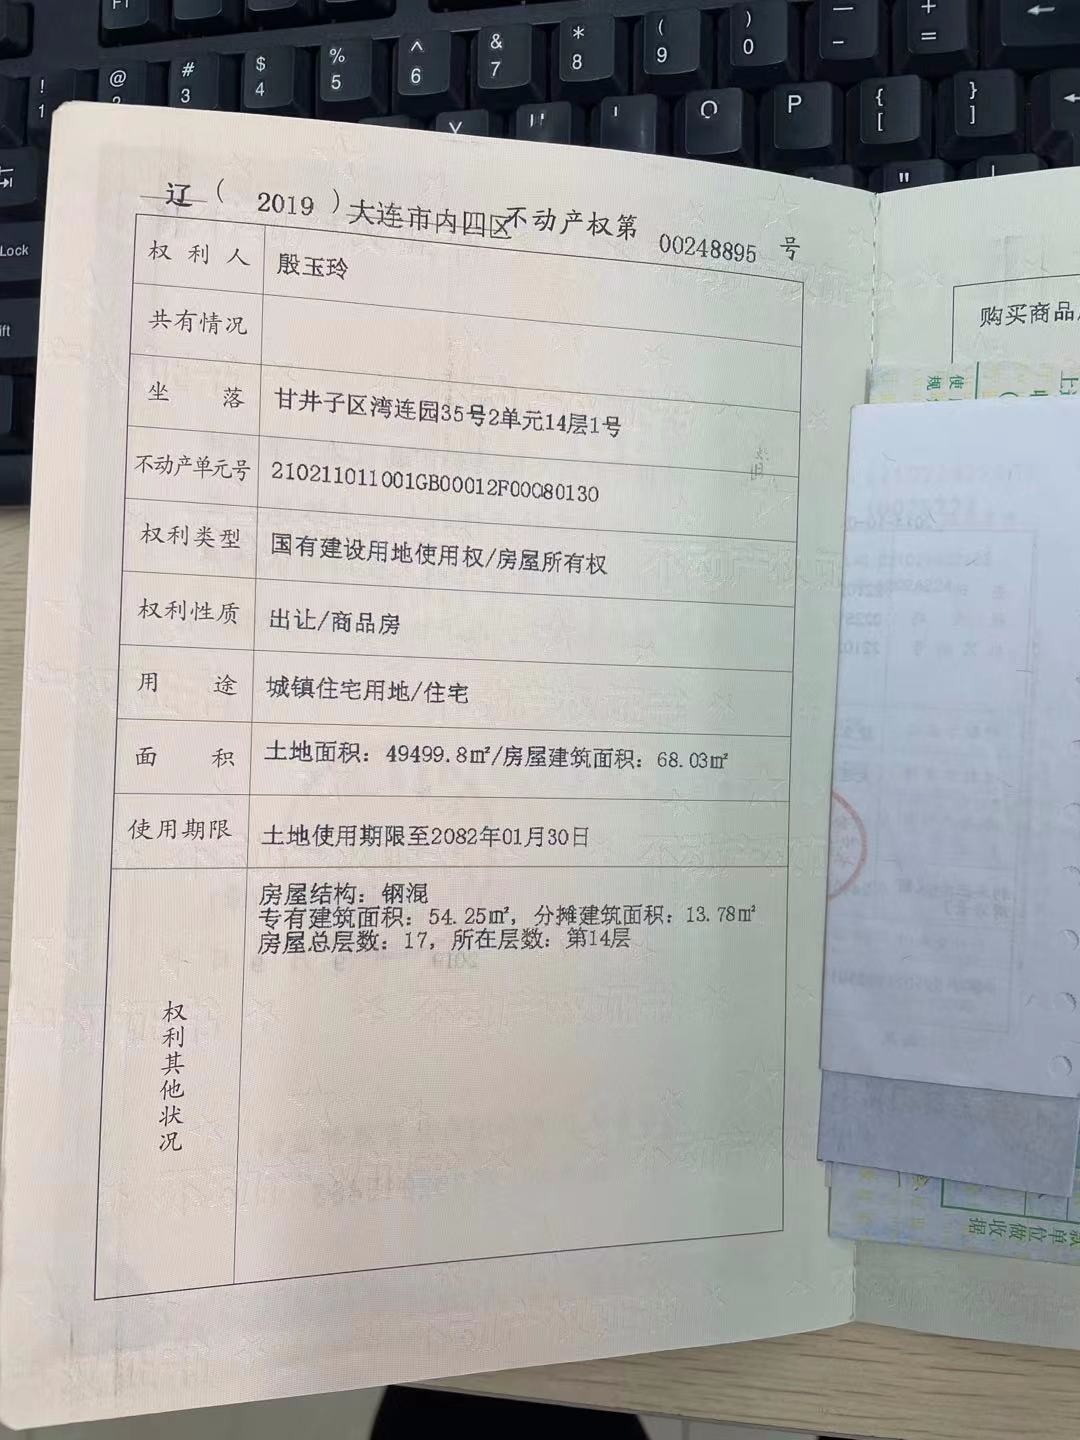 辽（2019）大连市内四区不动产权第00248895号
权利人 殷玉玲
共有情况
坐落 甘井子区湾连园35号2单元14层1号
不动产单元号 210211011001GB00012F00080130
权利类型 国有建设用地使用权/房屋所有权
权利性质 出让/商品房
用途 城镇住宅用地/住宅
面积 土地面积：49499.8㎡/房屋建筑面积：68.03㎡
使用期限 土地使用期限至2082年01月30日
权利其他状况
房屋结构：钢混
专有建筑面积：54.25㎡，分摊建筑面积：13.78㎡
房屋总层数：17，所在层数：第14层
购买商品